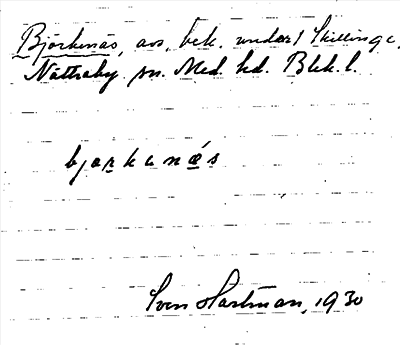 Björkenäs, avs, bek. under 1 Skillinge,
Nättraby sn. Med. hd. Blek. l.
bjarkanæs
Sven Hartman, 1930